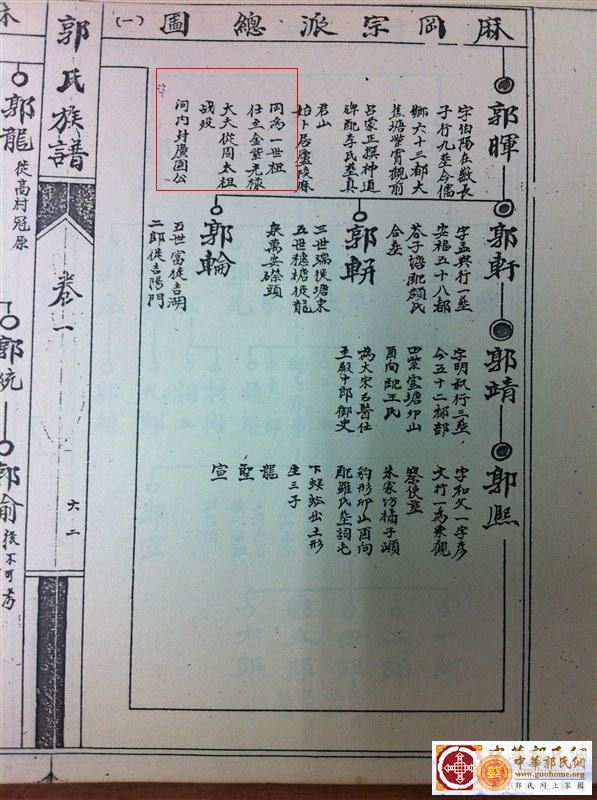 麻岡宗派總圖(一)
郭暉
字伯陽在數長
子行九塋今儒
鄉六十三都大
蕉塘紫霄觀前
呂家正撰神道
碑配李氏塋真
君山
始卜居廬陵麻
岡為一世祖
仕至金紫光祿
大夫從周太祖
战殁
河内封慶國公
郭軒
字孟興行一塋
安福五十八都
荅子塘配顔氏
合塟
郭軿
三世瑞徙塘東
五世穗塘徙龍
泉萬安磜頭
郭輪
五世富徙吉湖
二郎徙吉陽門
郭靖
字明叔行三塋
今五十二都部
田紫雲塘卯山
酉向配王氏
為大宋名醫仕
至殿中郎御史
郭熙
字和父一字彦
文行一為東觀
察使塋
朱家坊橘子塸
豹形卯山酉向
配羅氏塋詞屯
下蜈蚣出土形
生三子
龍
聖
宣
郭氏族譜
卷一
六二
郭龍
從高村冠原
郭統
郭俞
後不可考
中華郭氏網
www.guohome.org
郭氏网上家園